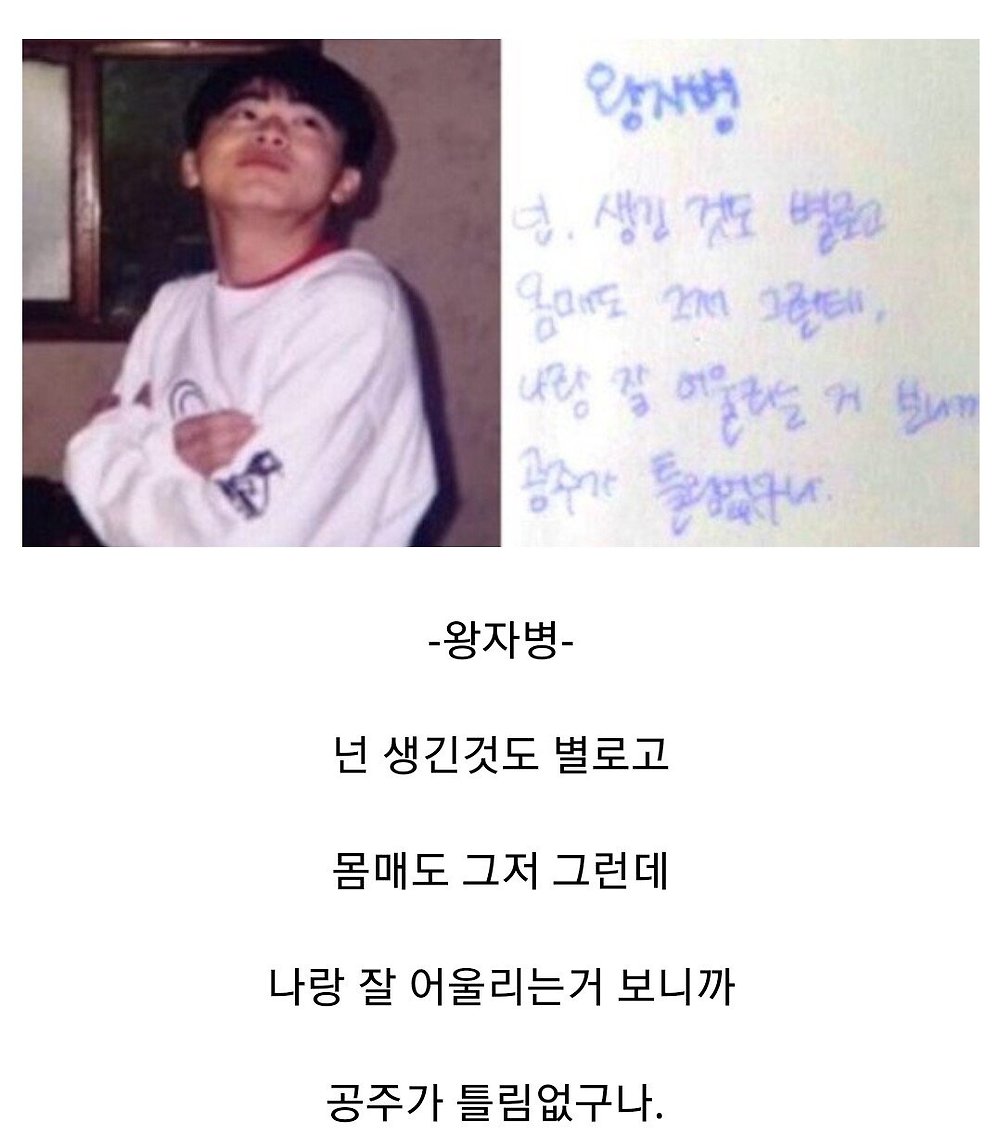 왕자병
넌. 생긴 것도 별로고
몸매도 그저 그런데,
나랑 잘 어울리는 거 보니까
공주가 틀림없구나.
-왕자병-
넌 생긴것도 별로고
몸매도 그저 그런데
나랑 잘 어울리는거 보니까
공주가 틀림없구나.